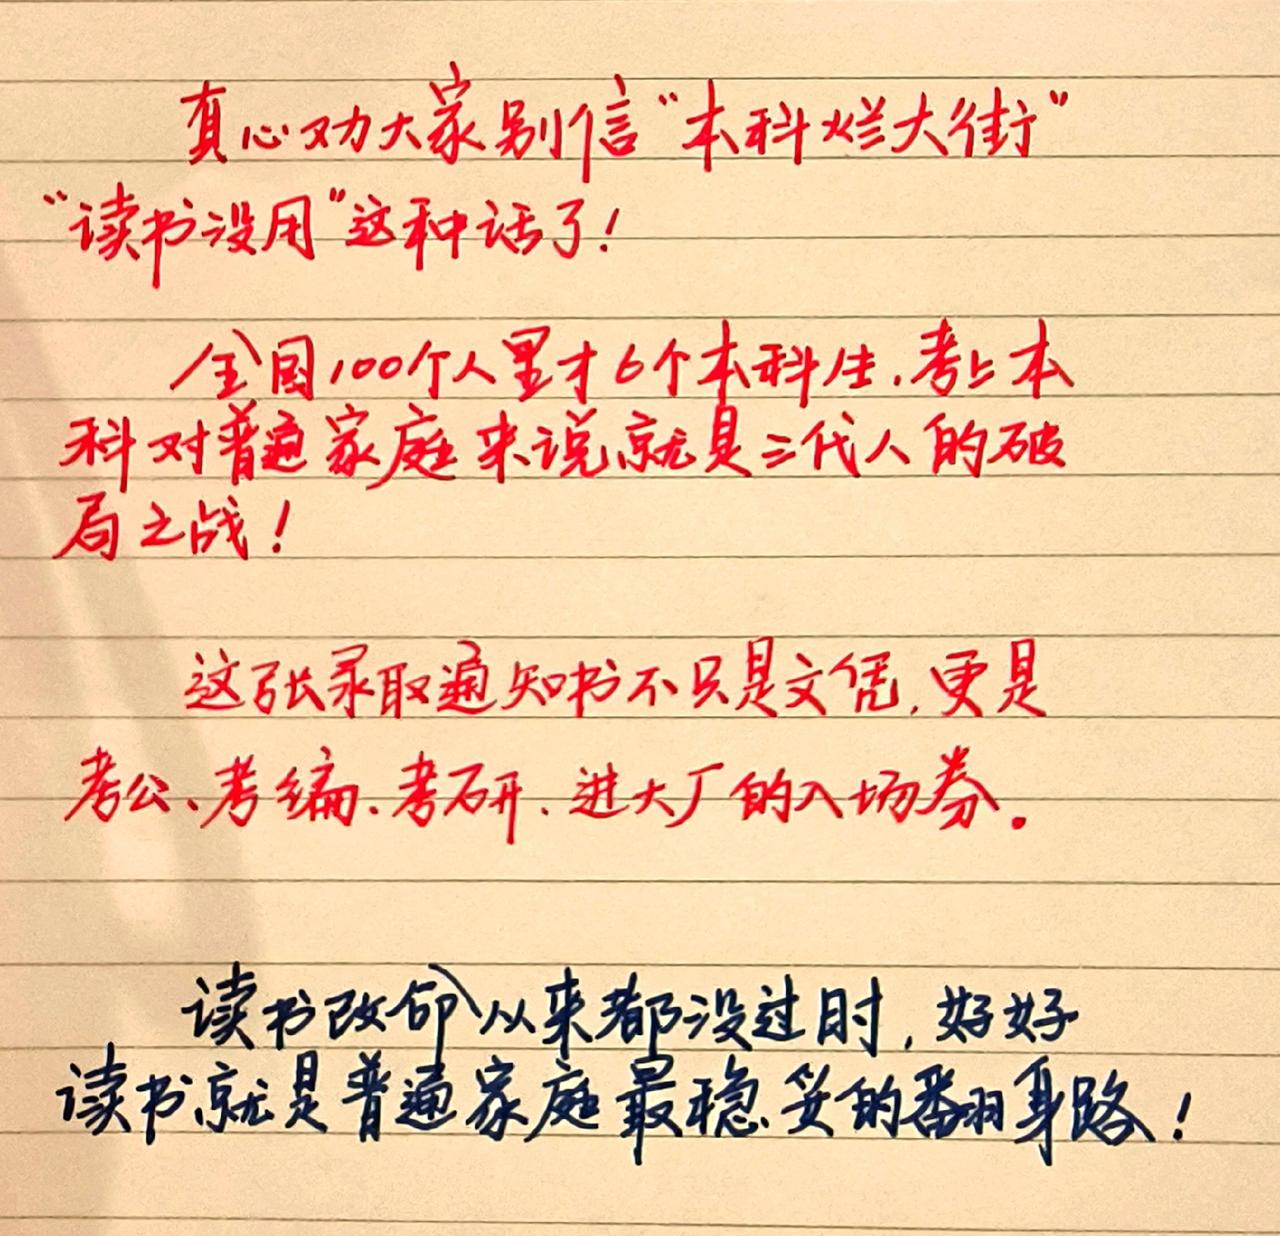 真心劝大家别信“本科烂大街”
“读书没用”这种话了！
全国100个人里才6个本科生，考上本
科对普通家庭来说就是三代人的破
局之战！
这张录取通知书不只是文凭，更是
考公、考编、考研、进大厂的入场券。
读书改命从来都没过时，好好
读书就是普通家庭最稳妥的翻身路！